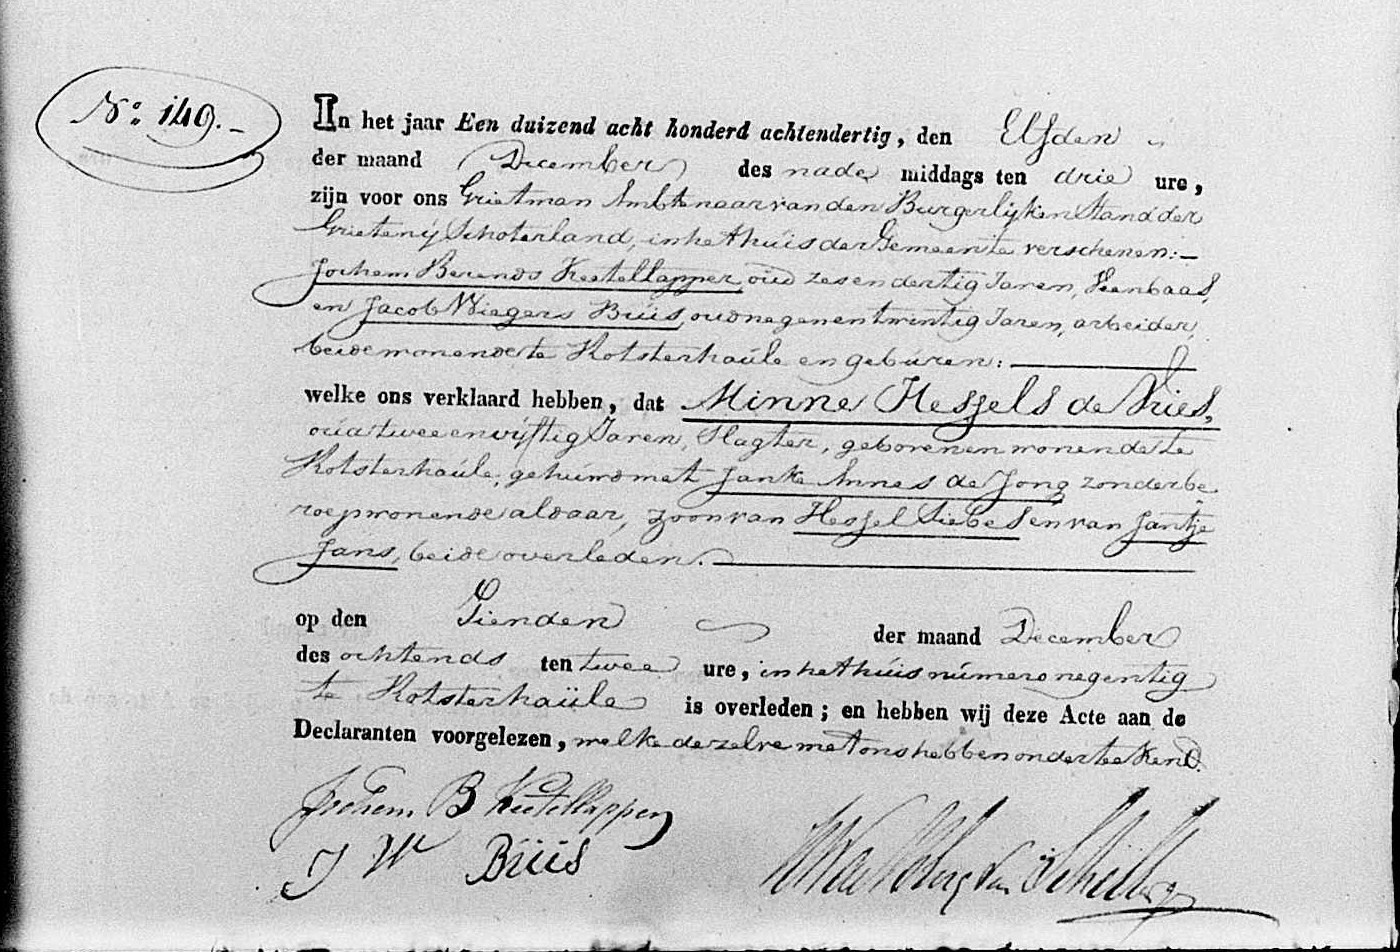 No. 149.
In het jaar Een duizend acht honderd achtendertig, den Elfden
der maand December des nade middags ten drie ure,
zijn voor ons Grietman Ambtenaar van den Burgerlijken Stand der
Grietenij Schoterland, in het huis der Gemeente verschenen:
Jochem Berends Keetellapper, oud zesendertig Jaren, Veenbaas,
en Jacob Wiegers Büüs, oud negenentwintig Jaren, arbeider,
beide wonende te Rotsterhaule en geburen:
welke ons verklaard hebben, dat Minne Hessels de Vries,
oud twee en vijftig Jaren, Slagter, geboren en wonende te
Rotsterhaule, gehuwd met Janke Annes de Jong zonder be
roep wonende aldaar, zoon van Hessel Siebes en van Jantje
Jans, beide overleden.
op den Tienden der maand December
des ochtends ten twee ure, in het huis numero negentig
te Rotsterhaule is overleden; en hebben wij deze Acte aan de
Declaranten voorgelezen, welke dezelve met ons hebben onderteekend.
Jochem B Keetellapper
J W Büüs